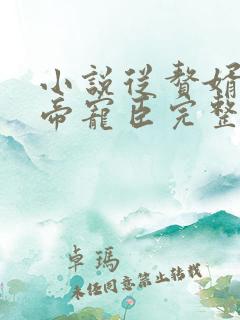 小說從贅婿
帝寵臣完整
卓瑪
未经同意禁止转载